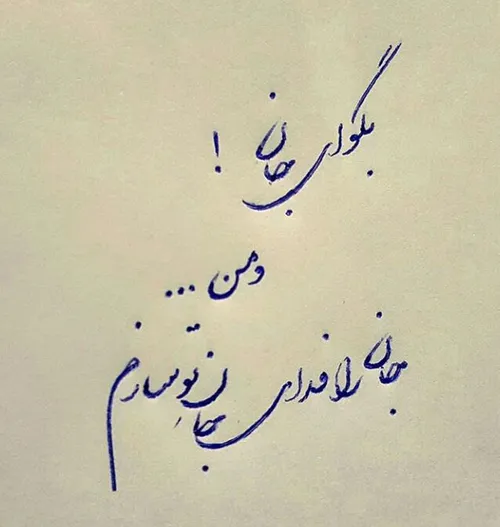 بگو ای جان !
و من ...
جان را فدای جانِ تو سازم